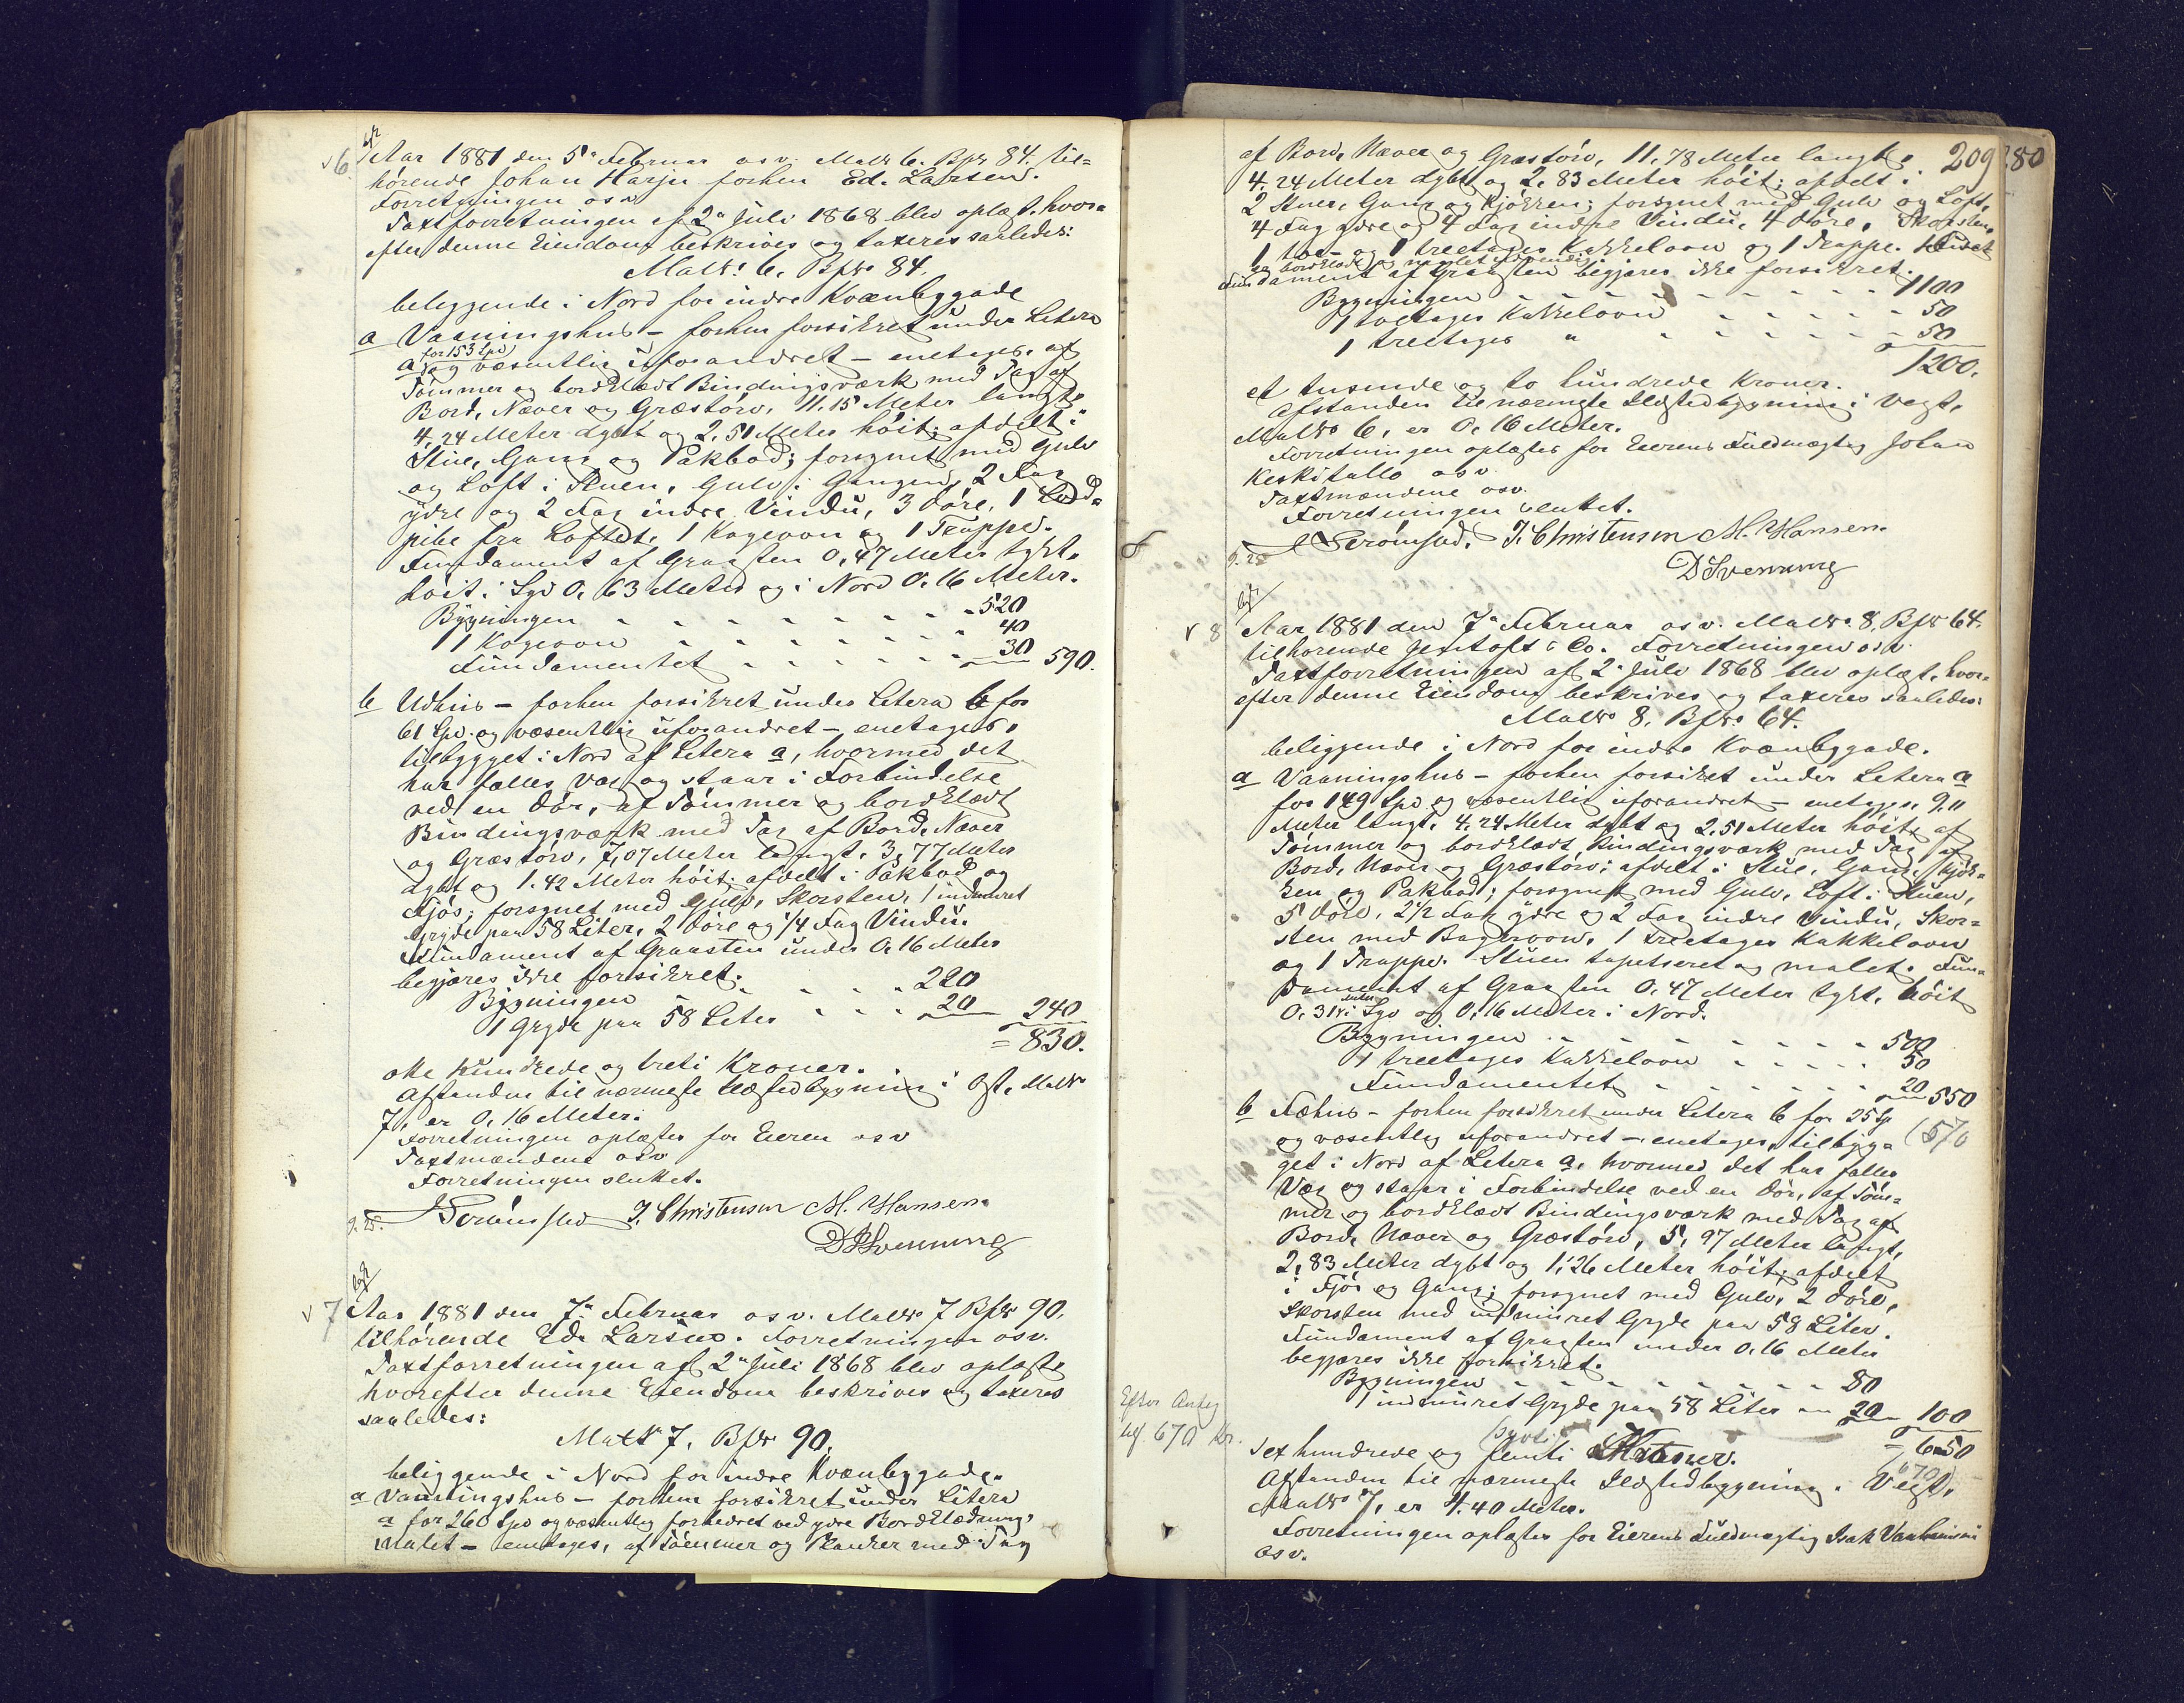 v 6. Aar 1881 den 5te Februar osv. Matr. 6. Bfr 84. til=
hørende Johan Harju forhen Ed. Larsen.
Forretningen osv
Taxtforretningen af 2n Juli 1868 blev oplæst, hvor=
efter denne Eiendom beskrives og taxeres saaledes:
Matr. 6. Bfr. 84.
beliggende i Nord for indre Kvænbygade
a Vaaningshus – forhen forsikret under Litera
a for 153 Spd og væsentlig uforandret – enetages, af
Tømmer og bordklædt Bindingsværk med Tag af
Bord, Næver og Græstørv, 11,15 Meter langt,
4,24 Meter dybt og 2,51 Meter høit; afdelt i
Stue, Gang og Pakbod; forsynet med Gulv
og Loft i Stuen, Gulv i Gangen, 2 Fag
ydre og 2 Fag indre Vindu, 3 Døre, 1
pibe fra Loftet, 1 Kogeovn og 1 Trappe.
Fundament af Graasten 0,47 Meter tykt,
høit i Syd 0,63 Meter og i Nord 0,16 Meter.
Bygningen - - - - - - - 520
1 Kogeovn - - - - - - - 40
Fundamentet - - - - - - 30 590.
b Udhus – forhen forsikret under Litera b for
61 Spd. og væsentlig uforandret – enetages,
tilbygget i Nord af Litera a, hvormed det
har fælles Væg og staar i Forbindelse
ved en Dør, af Tømmer og bordklædt
Bindingsværk med Tag af Bord, Næver
og Græstørv, 7,07 Meter langt, 3,77 Meter
dybt og 1,42 Meter høit; afdelt i Pakbod og
Fjøs; forsynet med Gulv, Skorsten, 1 indmuret
Gryde paa 58 Liter, 2 Døre og 1/4 Fag Vindu.
Fundament af Graasten under 0,16 Meter
begjæres ikke forsikret.
Bygningen - - - - - 220
1 Gryde paa 58 Liter - - - 20 240
= 830.
otte hundrede og treti Kroner.
Afstanden til nærmeste Ildstedbygning i Øst, Matr
7, er 0,16 Meter.
Forretningen oplæstes for Eieren osv
Taxtmændene osv
Forretningen sluttet.
J. Christensen M. Hansen.
D Svenning
v 7 Aar 1881 den 7de Februar osv. Matr. 7 Bfr 90.
tilhørende Ed. Larsen. Forretningen osv.
Taxtforretningen af 2n Juli 1868 blev oplæst,
hvorefter denne Eiendom beskrives og taxeres
saaledes:
Matr 7. Bfr 90.
beliggende i Nord for indre Kvænbygade.
a Vaaningshus – forhen forsikret under Litera
a for 260 Spd og væsentlig forbedret ved ydre Bordklædning,
malet – enetages, af Tømmer og Planker med Tag
209 280
af Bord, Næver og Græstørv, 11,78 Meter langt,
4,24 Meter dybt og 2,83 Meter høit; afdelt i
2 Stuer, Gang og Kjøkken; forsynet med Gulv og Loft,
4 Fag ydre og 4 Fag indre Vindu, 4 Døre, Skorsten,
1 toe- og 1 treetages Kakkelovn og 1 Trappe. Huset
er bordklædt og malet udvendig
Fundament af Graasten begjæres ikke forsikret.
Bygningen - - - - - - - 1100
1 toetages Kakkelovn - - - - - 50
1 treetages " - - - - - 50
1200.
et tusende og to hundrede Kroner.
Afstanden til nærmeste Ildstedbygning i Vest,
Matr 6, er 0,16 Meter.
Forretningen oplæstes for Eierens Fuldmægtig Johan
Keskitallo osv
Taxtmændene osv.
Forretningen sluttet.
J. Christensen M. Hansen.
D Svenning
v 8 Aar 1881 den 7de Februar osv. Matr. 8, Bfr 64.
tilhørende Jentoft & Co. Forretningen osv
Taxtforretningen af 2n Juli 1868 blev oplæst, hvor=
efter denne Eiendom beskrives og taxeres saaledes:
Matr. 8, Bfr. 64.
beliggende i Nord for indre Kvænbygade.
a Vaaningshus – forhen forsikret under Litera a
for 149 Spd og væsentlig uforandret – enetages, 9,11
Meter langt, 4,24 Meter dybt og 2,51 Meter høit, af
Tømmer og bordklædt Bindingsværk med Tag af
Bord, Næver og Græstørv; afdelt i Stue, Gang, Kjøk=
ken og Pakbod; forsynet med Gulv, Loft i Stuen,
5 Døre, 2 1/2 Fag ydre og 2 Fag indre Vindu, Skor=
sten med Bagerovn, 1 treetages Kakkelovn
og 1 Trappe. Stuen tapetseret og malet. Fun=
dament af Graasten 0,47 Meter tykt, høit
0,31 Meter i Syd og 0,16 Meter i Nord.
Bygningen - - - - - - - 500
1 treetages Kakkelovn - - - - 50
Fundamentet - - - - - - 20 550
(570
b Fæhus – forhen forsikret under Litera b for 25 Sp
og væsentlig uforandret – enetages, tilbyg=
get i Nord af Litera a, hvormed det har fælles
Væg og staar i Forbindelse ved en Dør, af Tøm=
mer og bordklædt Bindingsværk med Tag af
Bord, Næver og Græstørv, 5,97 Meter langt,
2,83 Meter dybt og 1,26 Meter høit; afdelt
i Fjøs og Gang; forsynet med Gulv, 2 Døre,
Skorsten med indmuret Gryde paa 58 Liter.
Fundament af Graasten under 0,16 Meter
begjæres ikke forsikret.
Bygningen - - - - - - - 80
1 indmuret Gryde paa 58 Liter - 20 100
= 650
(670)
Efter
670 Kr.
sex hundrede og femti (sytti) Kroner.
Afstanden til nærmeste Ildstedbygning i Vest,
Matr 7, er 4,40 Meter.
Forretningen oplæstes for Eierens Fuldmægtig Isak
osv.